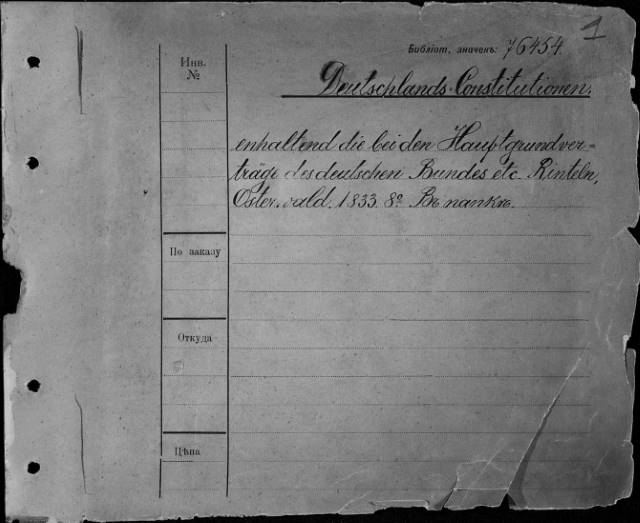 1
Библіот. значекъ: 76454
Инв.
№
Deutschlands Constitutionen,
enhaltend die bei den Hauptgrundver=
träge des deutschen Bundes etc. Rinteln,
Osterwald. 1833. 8º. Въ папкѣ.
По заказу
Откуда
Цѣна